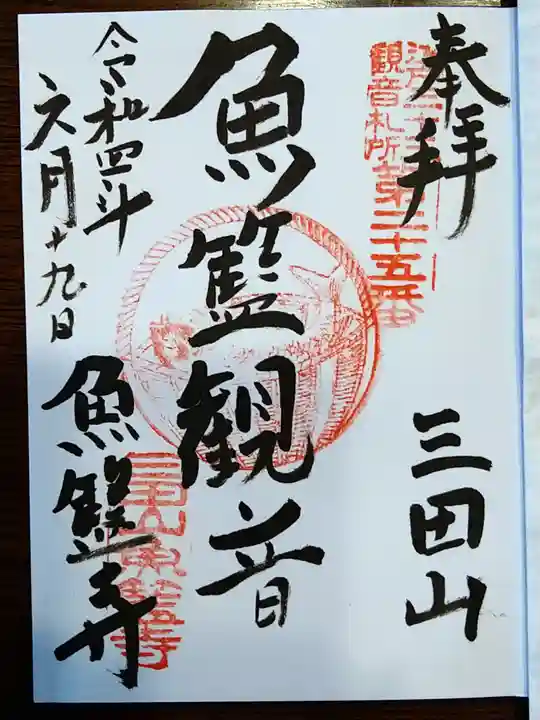 奉拝
江戸三十三
観音札所第二十五番
三田山
魚籃観音
令和四年
六月十九日
魚籃寺
三田山魚籃寺